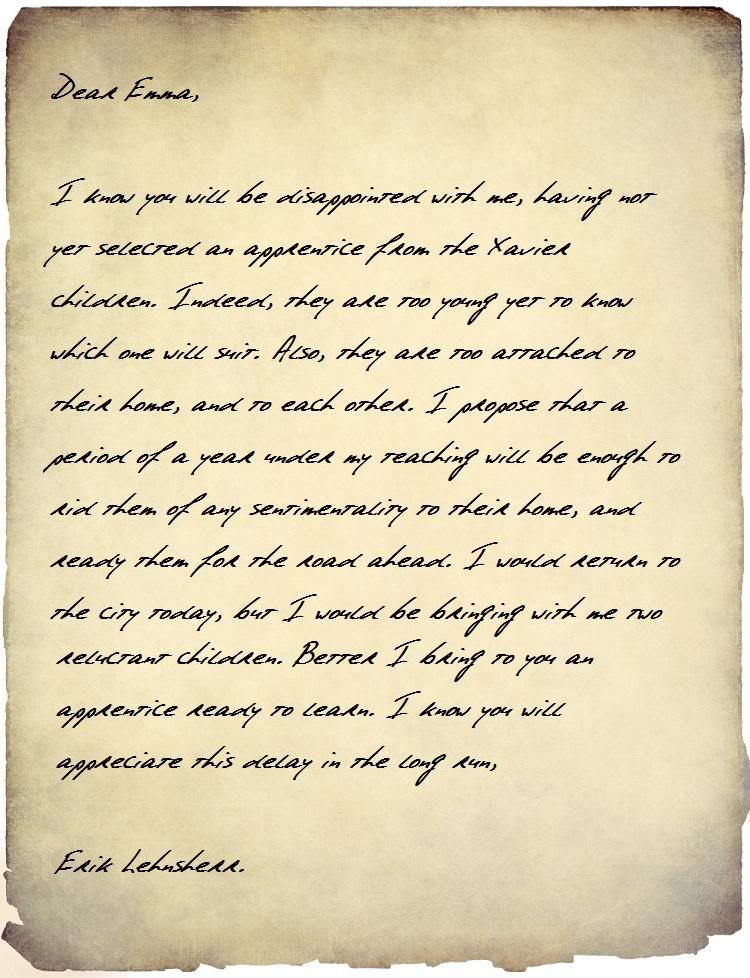 Dear Emma,
I know you will be disappointed with me, having not
yet selected an apprentice from the Xavier
children. Indeed, they are too young yet to know
which one will suit. Also, they are too attached to
their home, and to each other. I propose that a
period of a year under my teaching will be enough to
rid them of any sentimentality to their home, and
ready them for the road ahead. I would return to
the city today, but I would be bringing with me two
reluctant children. Better I bring to you an
apprentice ready to learn. I know you will
appreciate this delay in the long run,
Erik Lehnsherr.